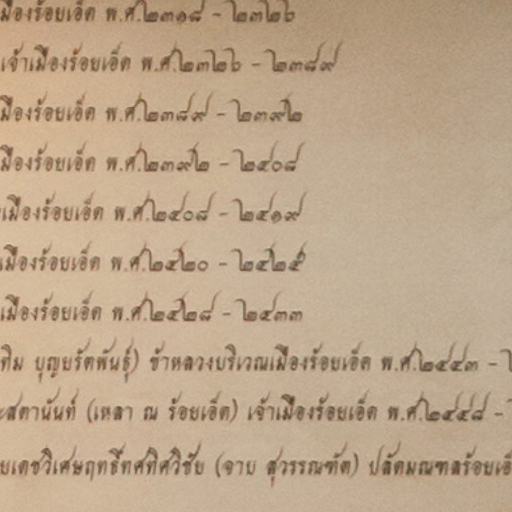 เมืองร้อยเอ็ด พ.ศ.๒๓๑๘ - ๒๓๒๖
เจ้าเมืองร้อยเอ็ด พ.ศ.๒๓๒๖ - ๒๓๘๙
เมืองร้อยเอ็ด พ.ศ.๒๓๘๙ - ๒๓๙๒
เมืองร้อยเอ็ด พ.ศ.๒๓๙๒ - ๒๔๐๘
เมืองร้อยเอ็ด พ.ศ.๒๔๐๘ - ๒๔๑๙
เมืองร้อยเอ็ด พ.ศ.๒๔๒๐ - ๒๔๒๕
เมืองร้อยเอ็ด พ.ศ.๒๔๒๘ - ๒๔๓๓
ทิม บุญยรัตพันธุ์) ข้าหลวงบริเวณเมืองร้อยเอ็ด พ.ศ.๒๔๔๓ -
ะสตานันท์ (เหลา ณ ร้อยเอ็ด) เจ้าเมืองร้อยเอ็ด พ.ศ.๒๔๔๘ -
ยเดชวิเศษฤทธิ์ทศทิศวิชัย (จาบ สุวรรณทัต) ปลัดมณฑลร้อยเอ็